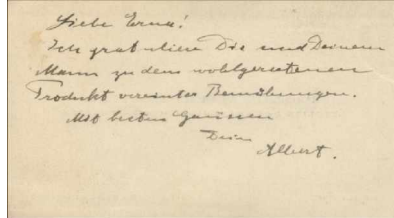 Liebe Erna!
Ich gratuliere Dir und Deinem
Mann zu dem wohlgeratenen
Produkt vereinter Bemühungen.
Mit besten Grüssen
Dein
Albert.